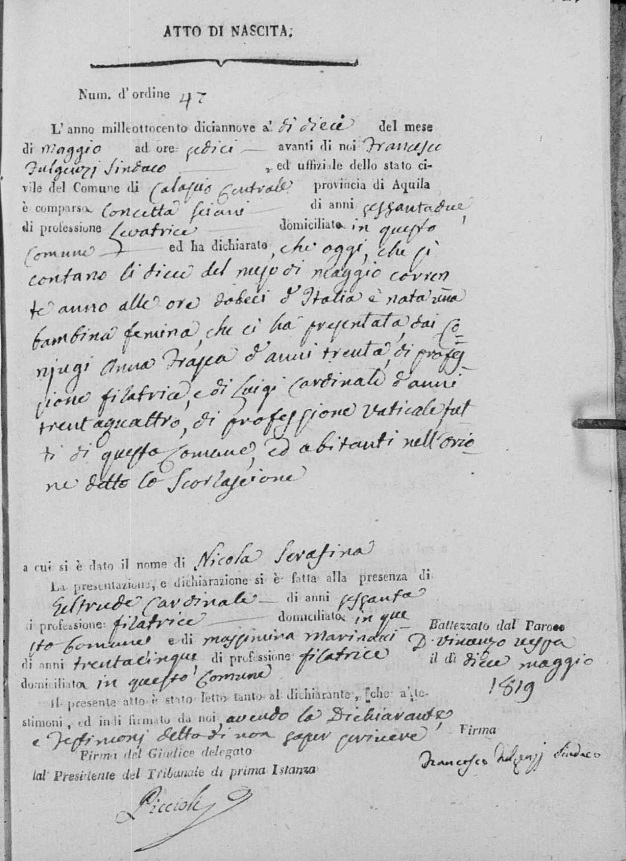 ATTO DI NASCITA.
Num. d'ordine 47
L'anno milleottocento diciannove a' di dieci del mese
di Maggio ad ore sedici avanti di noi Francesco
Fulgenzj Sindaco ed uffiziale dello stato ci-
vile del Comune di Calascio Centrale provincia di Aquila
è comparsa Concetta di anni sessantadue
di professione Levatrice domiciliata in questo
Comune ed ha dichiarato, che oggi, che si
contano li diece del mese di Maggio corren
te anno alle ore dodeci d'Italia è nata una
bambina femina, che ci ha presentata, dai Co=
njugi Anna Frasca d'anni trenta, di profes-
sione filatrice, e di Luigi Cardinale d'anni
trentaquattro, di professione Vaticale, tut
ti di questo Comune, ed abitanti nell'orio-
ne detto lo
a cui si è dato il nome di Nicola Serafina
La presentazione, e dichiarazione si è fatta alla presenza di
Geltrude Cardinale di anni sessanta
di professione filatrice domiciliata in que
sto Comune e di Massimina Marinacci
di anni trentacinque di professione filatrice
domiciliata in questo Comune
Il presente atto è stato letto tanto al dichiarante, che a' te-
stimoni, ed indi firmato da noi avendo la Dichiarante,
e Testimonj detto di non saper scrivere
Firma del Giudice delegato
dal Presidente del Tribunale di prima Istanza
Piccioli
Battezzato dal Paroco
D. Vincenzo Vespa
il dì diece maggio
1819
Firma
Francesco Fulgenzj Sindaco